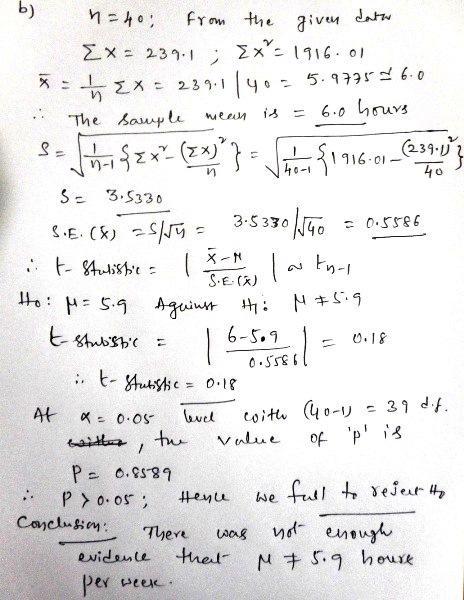 b)
n = 40; From the given data
Σx = 239.1 ; Σx² = 1916.01
x̄ = 1/n Σx = 239.1 / 40 = 5.9775 ≃ 6.0
∴ The sample mean is = 6.0 hours
S = √(1/(n-1) {Σx² - (Σx)²/n}) = √(1/(40-1) {1916.01 - (239.1)²/40})
S = 3.5330
S.E. (x̄) = S/√n = 3.5330/√40 = 0.5586
∴ t-statistic = | (x̄-μ)/S.E.(x̄) | ~ tn-1
H0: μ = 5.9 Against H1: μ ≠ 5.9
t-statistic = | (6-5.9)/0.5586 | = 0.18
∴ t-statistic = 0.18
At α = 0.05 level with (40-1) = 39 d.f.
, the value of 'p' is
P = 0.8589
∴ P > 0.05; Hence we fail to reject H0
Conclusion: There was not enough
evidence that μ ≠ 5.9 hours
per week.